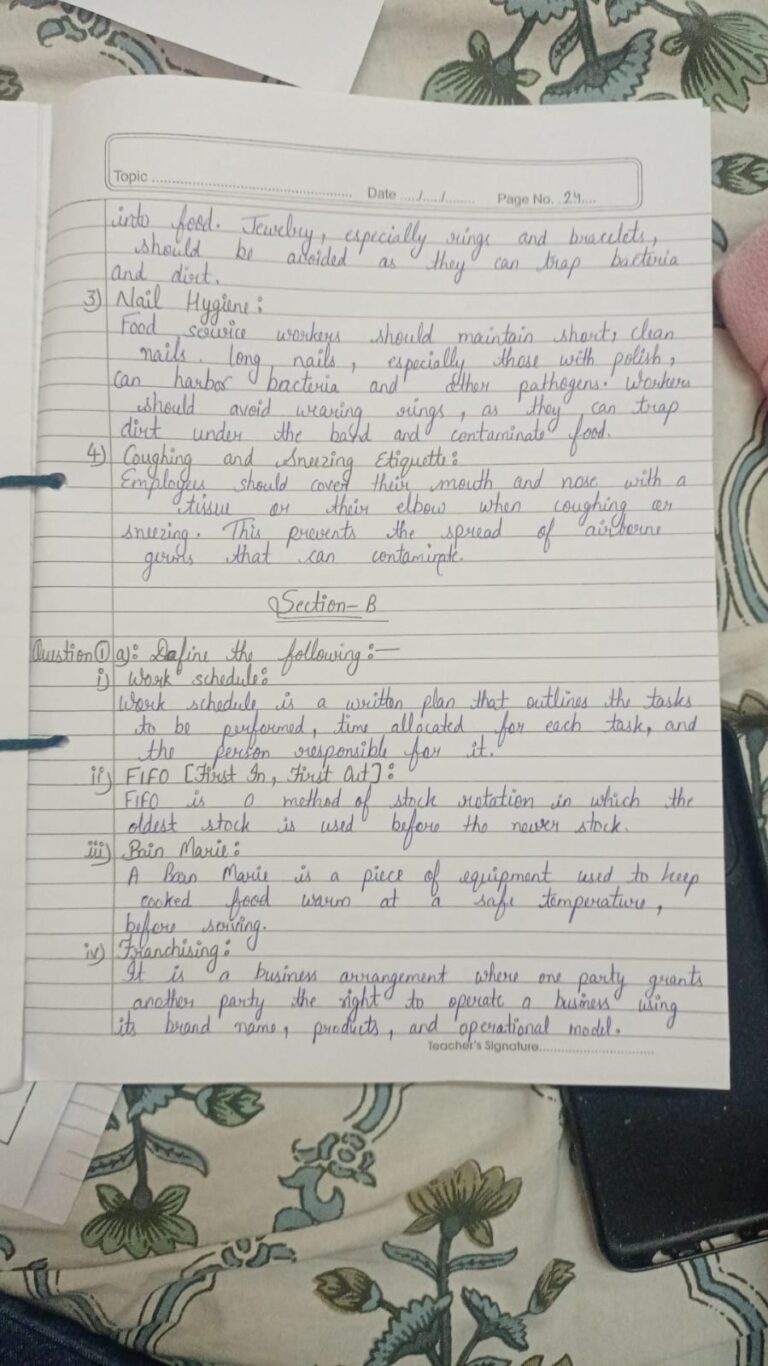 Topic ........................
Date ..../..../........ Page No. ..24....
into food. Jewelry, especially rings and bracelets,
should be avoided as they can trap bacteria
and dirt.
3) Nail Hygiene:
Food service workers should maintain short, clean
nails. long nails, especially those with polish,
can harbor bacteria and other pathogens. Workers
should avoid wearing rings, as they can trap
dirt under the band and contaminate food.
4) Coughing and Sneezing Etiquette:
Employees should cover their mouth and nose with a
tissue or their elbow when coughing or
sneezing. This prevents the spread of airborne
germs that can contaminate.
Section-B
Question ① a): Define the following:—
i) Work schedule:
Work schedule is a written plan that outlines the tasks
to be performed, time allocated for each task, and
the person responsible for it.
ii) FIFO [First In, First Out]:
FIFO is a method of stock rotation in which the
oldest stock is used before the newer stock.
iii) Bain Marie:
A Bain Marie is a piece of equipment used to keep
cooked food warm at a safe temperature,
before serving.
iv) Franchising:
It is a business arrangement where one party grants
another party the right to operate a business using
its brand name, products, and operational model.
Teacher's Signature........................